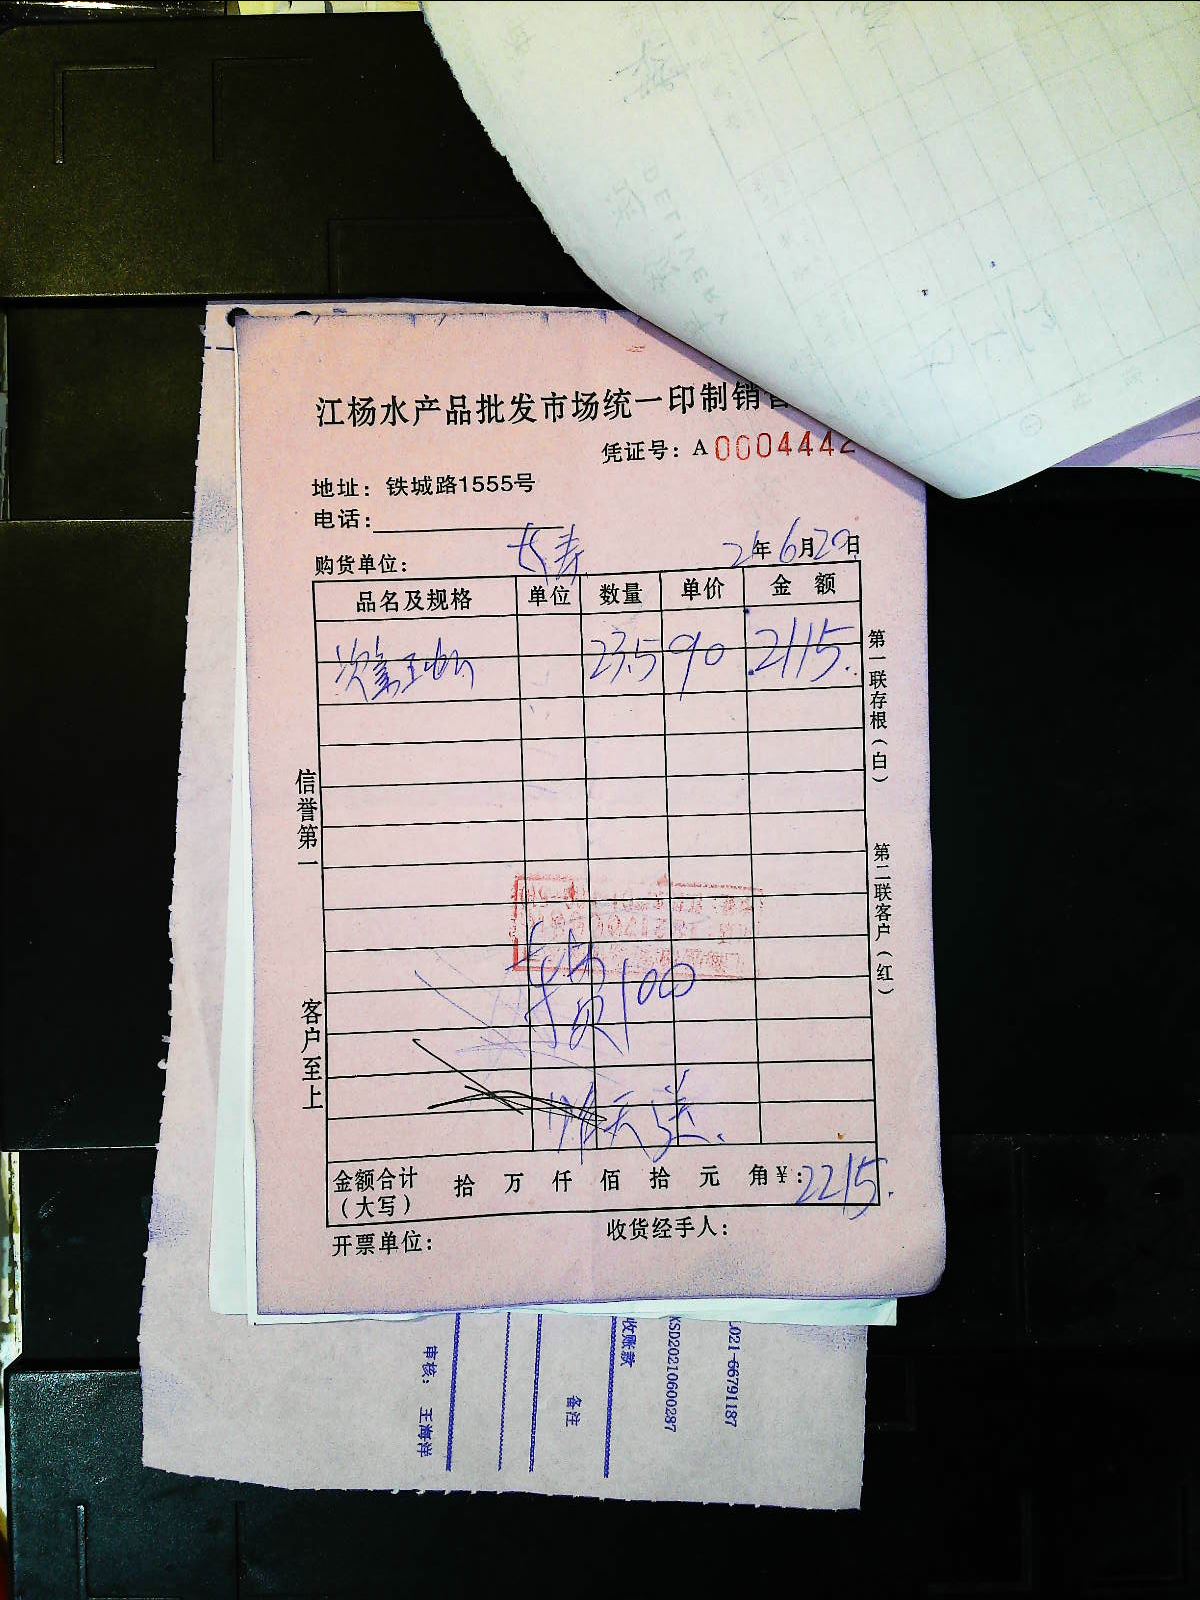 江杨水产品批发市场统一印制销售
凭证号：A 0004442
地址：铁城路1555号
电话：
长寿
21年6月20日
购货单位：
品名及规格 单位 数量 单价 金额
23.5 90 2115.
第一联存根（白）
第二联客户（红）
信誉第一
客户至上
100
昨天送.
金额合计（大写） 拾 万 仟 佰 拾 元 角 ¥：2215.
开票单位：
收货经手人：
021-66791187
KSD20210600287
收账款
备注
审核：王海洋
DELIVERY